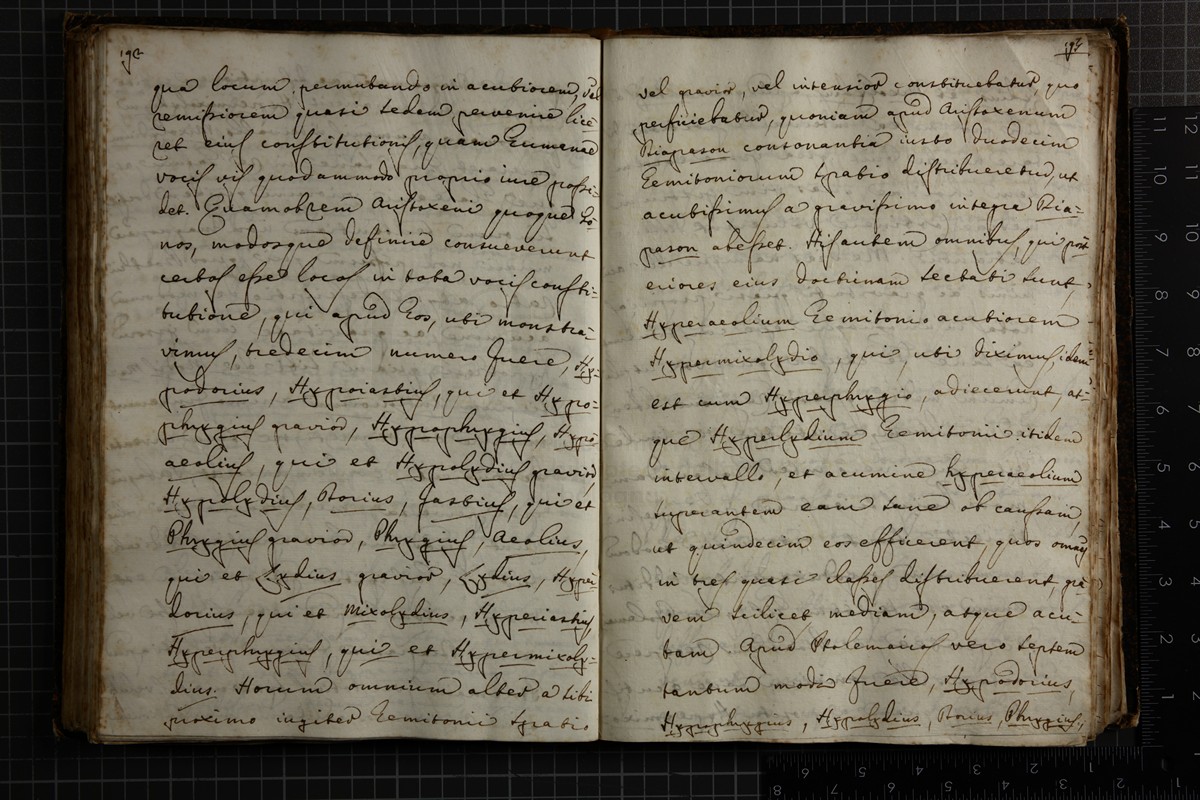 192
qua locum permutando in acutiorem, vel
remissiorem quasi sedem pervenire lice¯
ret eius constitutionis, quam humanae
vocis vis quodammodo proprio iure possi¯
det. Quamobrem Aristoxeni quoque To¯
nos, modosque definire consueverunt
certos esse locos in tota vocis consti¯
tutione, qui apud Eos, uti monstra¯
vimus, tredecim numero fuere, Hy¯
podorius, Hypoiastius, qui et Hypo¯
phrygius gravior, Hypophrygius, Hypo
aeolius, qui et Hypolydius gravior,
Hypolydius, Dorius, Iastius, qui et
Phrygius gravior, Phrygius, Aeolius,
qui et Lydius gravior, Lydius, Hyper
dorius, qui et Mixolydius, Hyperiastius,
Hyperphrygius, qui et Hypermixoly¯
dius. Horum omnium alter a sibi
proximo iugiter hemitonii spatio
193
vel gravior, vel intensior constituebatur, quo
perficiebatur, quoniam apud Aristoxenum
Diapason consonantia iusto duodecim
hemitoniorum spatio distribueretur, ut
acutissimus a gravissimo integra Dia¯
pason abesset. His autem omnibus, qui post
eriores eius doctrinam sectati sunt,
Hyperaeolium hemitonio acutiorem
Hypermixolydio, qui, uti diximus, idem
est cum Hyperphrygio, adiecerunt, at¯
que Hyperlydium hemitonii itidem
intervallo, et acumine hyperaeolium
superantem eam sane ob caussam,
ut quindecim eos efficerent, quos omnes
in tres quasi classes distribuerent, gra
vem scilicet mediam, atque acu¯
tam. Apud Ptolemaicos vero septem
tantum modi fuere, Hypodorius,
Hypophrygius, Hypolydius, Dorius, Phrygius,